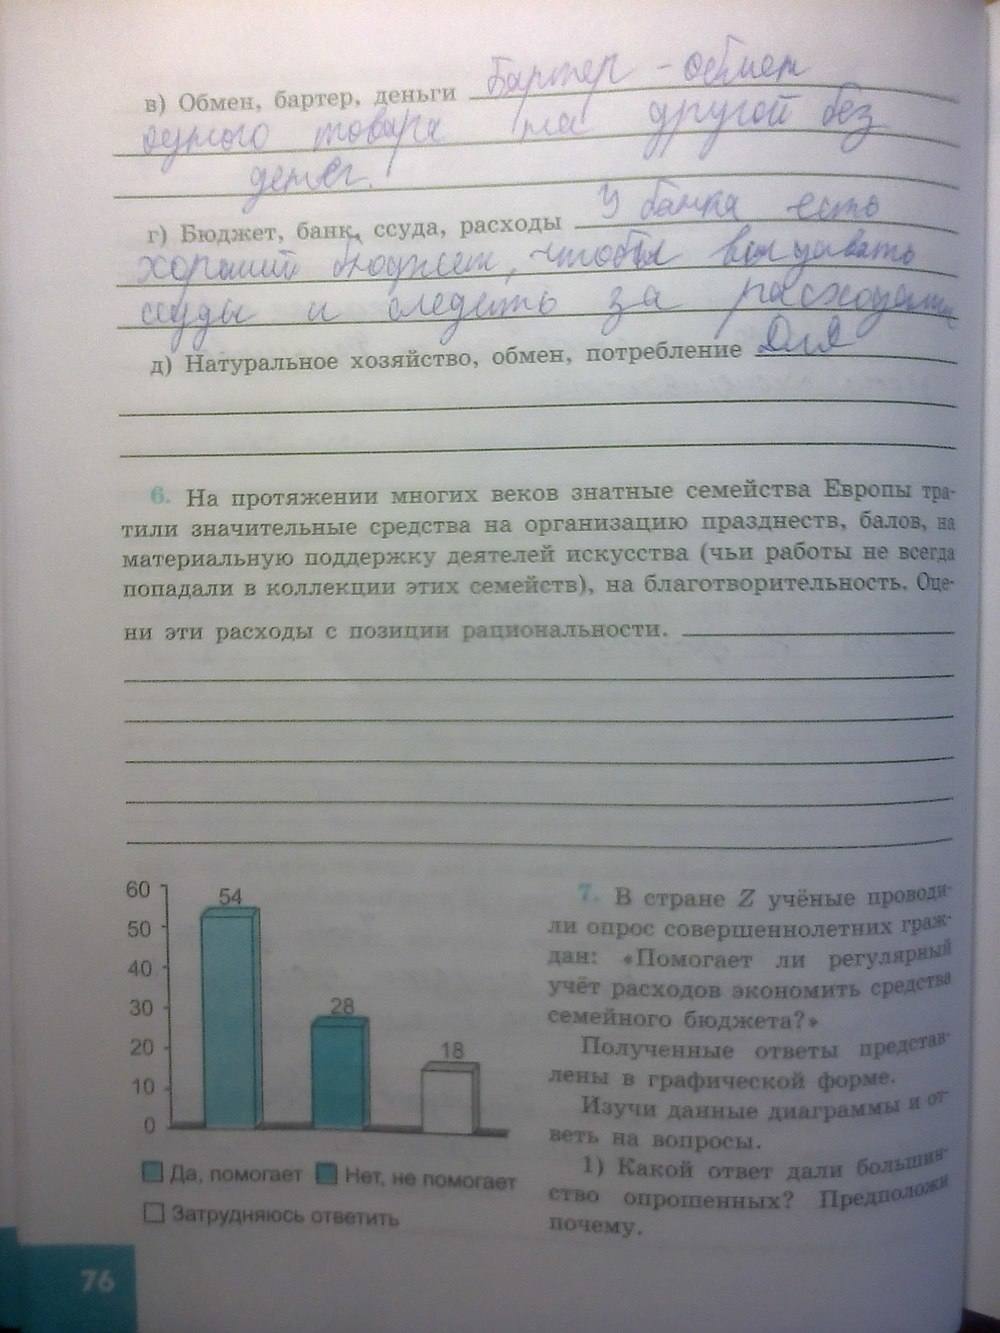 в) Обмен, бартер, деньги Бартер - обмен
одного товара на другой без
денег.
г) Бюджет, банк, ссуда, расходы У банка есть
хороший бюджет, чтобы выдавать
ссуды и следить за расходами
д) Натуральное хозяйство, обмен, потребление Для
6. На протяжении многих веков знатные семейства Европы тра-
тили значительные средства на организацию празднеств, балов, на
материальную поддержку деятелей искусства (чьи работы не всегда
попадали в коллекции этих семейств), на благотворительность. Оце-
ни эти расходы с позиции рациональности.
60
50
40
30
20
10
0
54
28
18
Да, помогает Нет, не помогает
Затрудняюсь ответить
7. В стране Z учёные проводи-
ли опрос совершеннолетних граж-
дан: «Помогает ли регулярный
учёт расходов экономить средства
семейного бюджета?»
Полученные ответы представ-
лены в графической форме.
Изучи данные диаграммы и от-
веть на вопросы.
1) Какой ответ дали большин-
ство опрошенных? Предположи
почему.
76